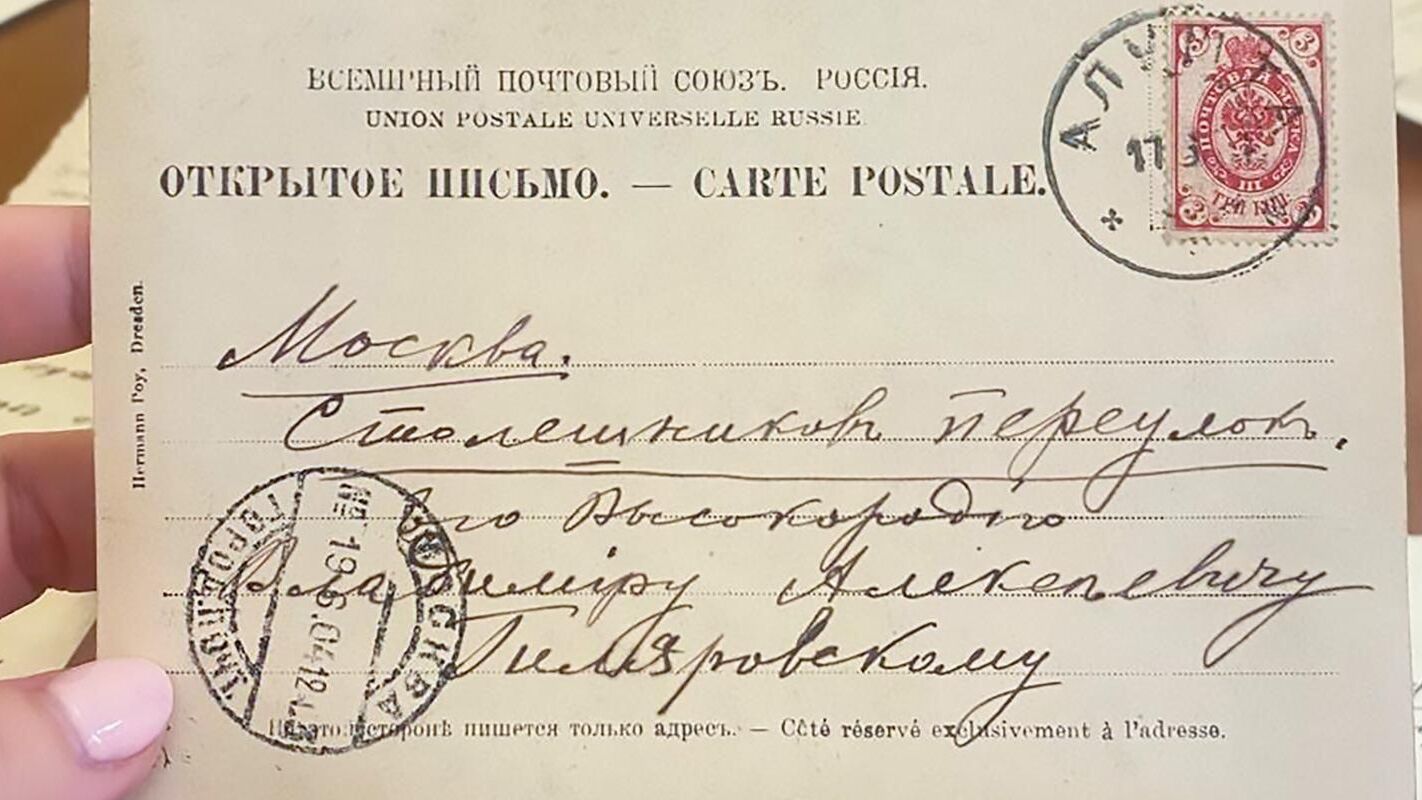 ВСЕМІРНЫЙ ПОЧТОВЫЙ СОЮЗЪ. РОССІЯ.
UNION POSTALE UNIVERSELLE RUSSIE.
ОТКРЫТОЕ ПИСЬМО. — CARTE POSTALE.
АЛУШТА
ПОЧТОВАЯ МАРКА
3 3
III
ТРИ КОП.
3
Hermann Poy, Dresden.
Москва.
Столешниковъ переулокъ.
Его Высокородію
Владиміру Алексѣевичу
Гиляровскому
МОСКВА
19.6.04
ГОРОД.
На этой сторонѣ пишется только адресъ. — Côté réservé exclusivement à l'adresse.